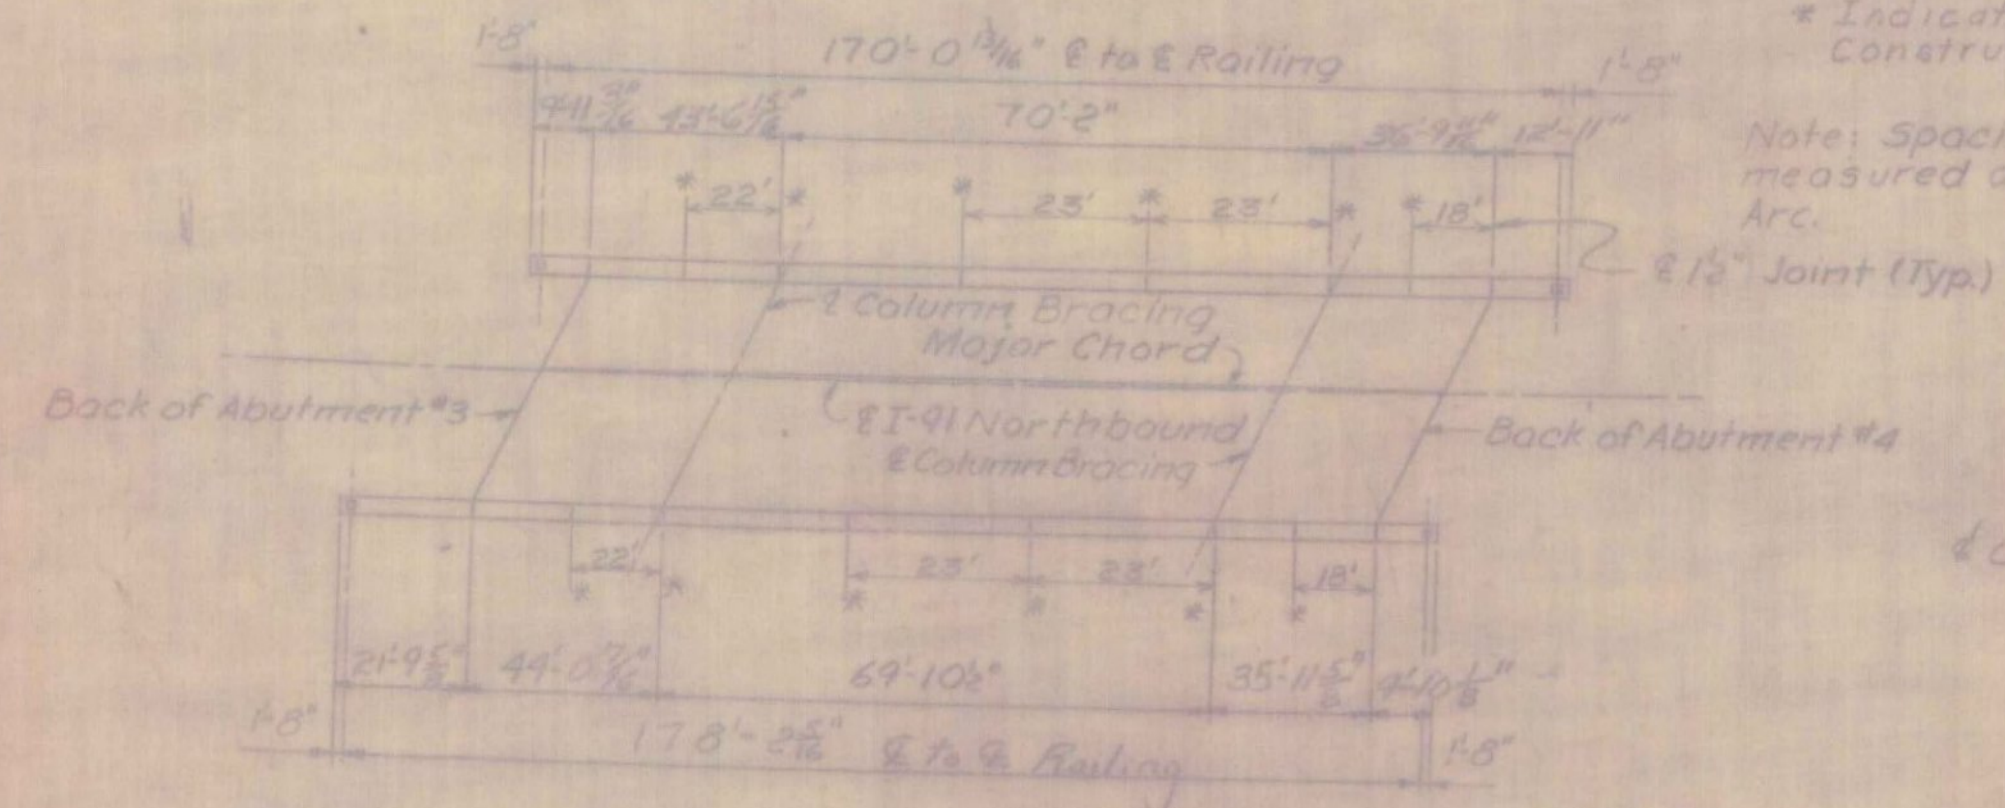 * Indicat
Constru
1'-8"
170'-0 13/16" ℄ to ℄ Railing
1'-8"
43'-6 15/16"
70'-2"
12'-11"
Note: Spac
measured
Arc.
*
22'
*
*
23'
*
23'
*
*
18'
℄ 1½" Joint (Typ.)
℄ Column Bracing
Major Chord
Back of Abutment #3
℄ I-91 Northbound
℄ Column Bracing
Back of Abutment #4
22'
23'
23'
18'
*
*
*
*
*
*
21'-9 5/8"
44'-0 7/16"
69'-10½"
35'-11 5/8"
1'-8"
178'-2 5/16" ℄ to ℄ Railing
1'-8"